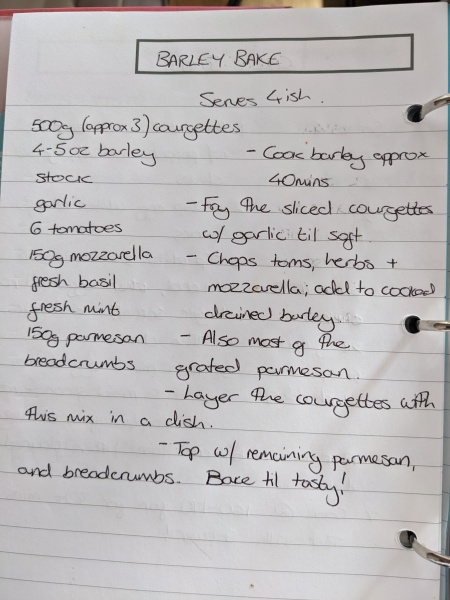 BARLEY BAKE
Serves 4ish.
500g (approx 3) courgettes
4-5oz barley
- Cook barley approx
stock
40mins
garlic
- Fry the sliced courgettes
6 tomatoes
w/ garlic til soft
150g mozzarella
- Chops toms, herbs +
fresh basil
mozzarella; add to cooked
fresh mint
drained barley
150g parmesan
- Also most of the
breadcrumbs
grated parmesan.
- Layer the courgettes with
this mix in a dish.
- Top w/ remaining parmesan,
and breadcrumbs. Bake til tasty!